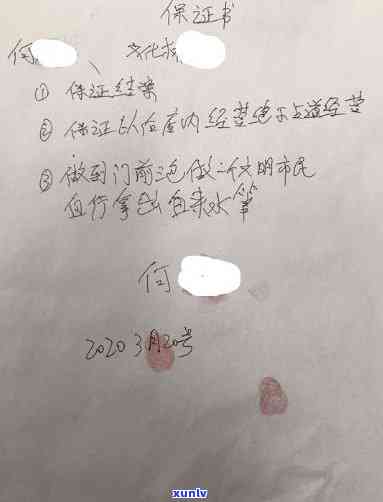 保证书
何 、 文化
① 保证结案
② 保证以位度内经营绝不占道经营
③ 做到门前三包 做一个文明市民
自行拿出自来水
何
2020 3月20号
xunlv